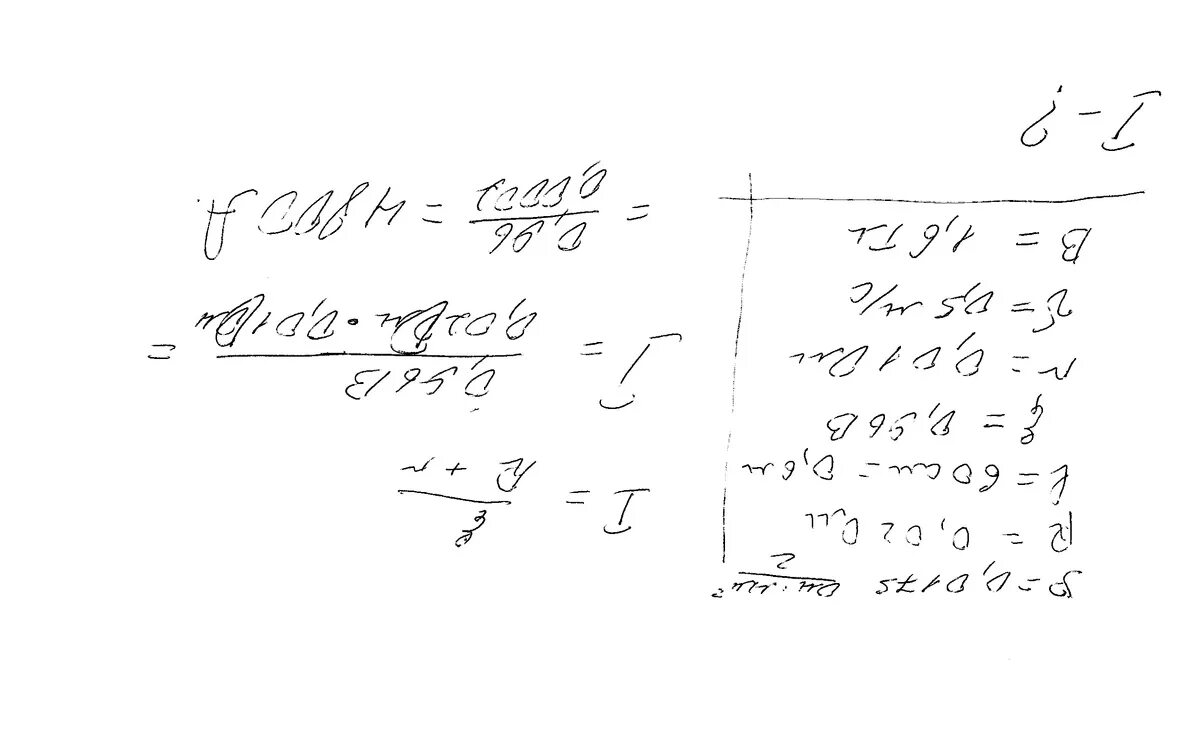 ρ = 0,0175 Ом·мм²/2
R = 0,02 Ом
l = 60 см = 0,6 м
ξ = 0,96 В
r = 0,01 Ом
v = 0,5 м/с
B = 1,6 Тл
I - ?
I = ξ / R + r
I = 0,96 В / 0,02 Ом · 0,01 Ом =
= 0,96 / 0,0002 = 4800 А